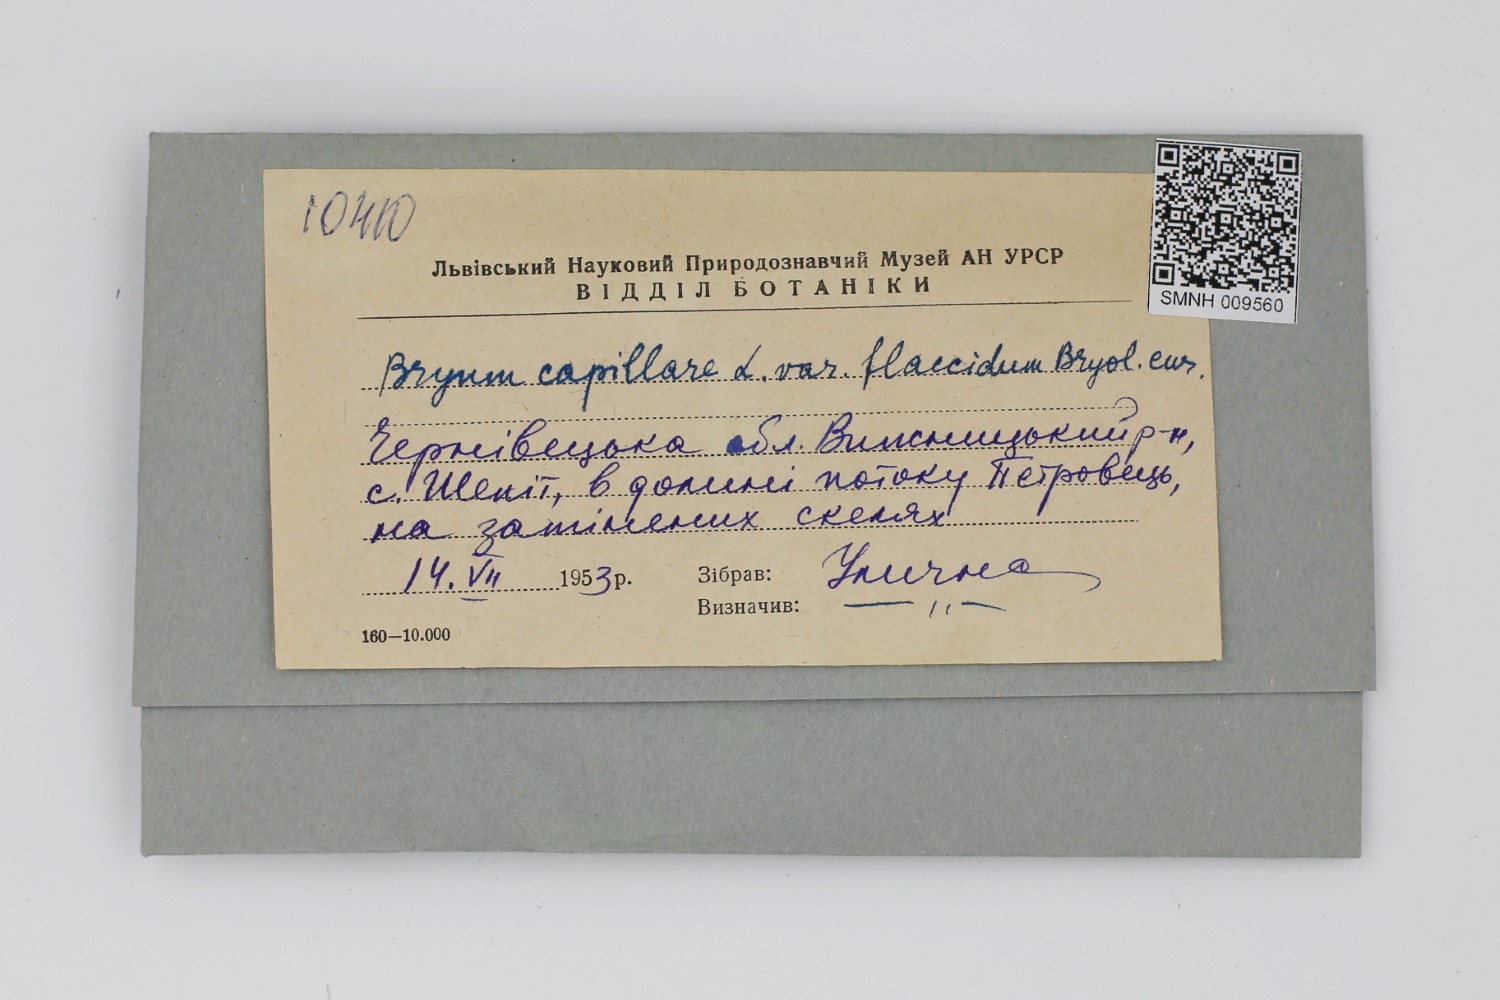 10410
Львівський Науковий Природознавчий Музей АН УРСР
ВІДДІЛ БОТАНІКИ
SMNH 009560
Bryum capillare L. var. flaccidum Bryol. eur.
Чернівецька обл. Вижницький р-н,
с. Шепіт, в долині потоку Петровець,
на затінених скелях
14. VII 1953р.
Зібрав: Улична
Визначив: — ,, —
160—10.000